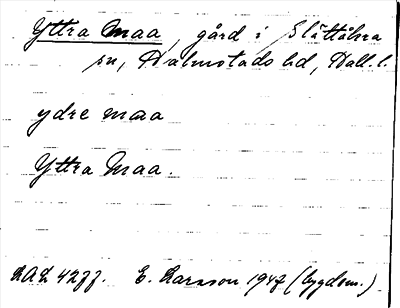 Yttra Maa, gård i Slättåkra
sn, Halmstads hd, Hall. l.
ydre maa
Yttra Maa.
LAL 4277. E. Larsson 1947 (bygdem.)